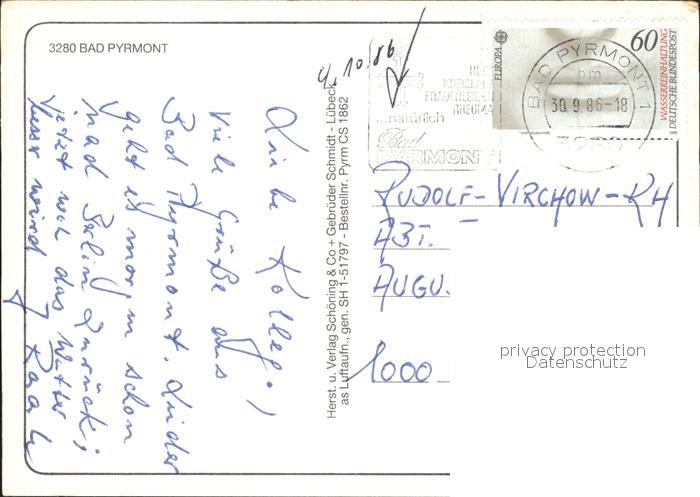 3280 BAD PYRMONT
4. 10. 86
Liebe Kolleg.!
Viele Grüße aus
Bad Pyrmont. Leider
geht es morgen schon
nach Berlin zurück,
jetzt wo das Wetter
besser wird
Herst. u. Verlag Schöning & Co + Gebrüder Schmidt - Lübeck
as Luftaufn., gen. SH 1-51797 - Bestellnr. Pyrm CS 1862
...natürlich
Bad
PYRMONT
EUROPA
60
WASSERREINHALTUNG
DEUTSCHE BUNDESPOST
BAD PYRMONT 1
bm
30.9.86-18
3280
RUDOLF-VIRCHOW-KH
ABT.
AUGU.
1000
privacy protection
Datenschutz